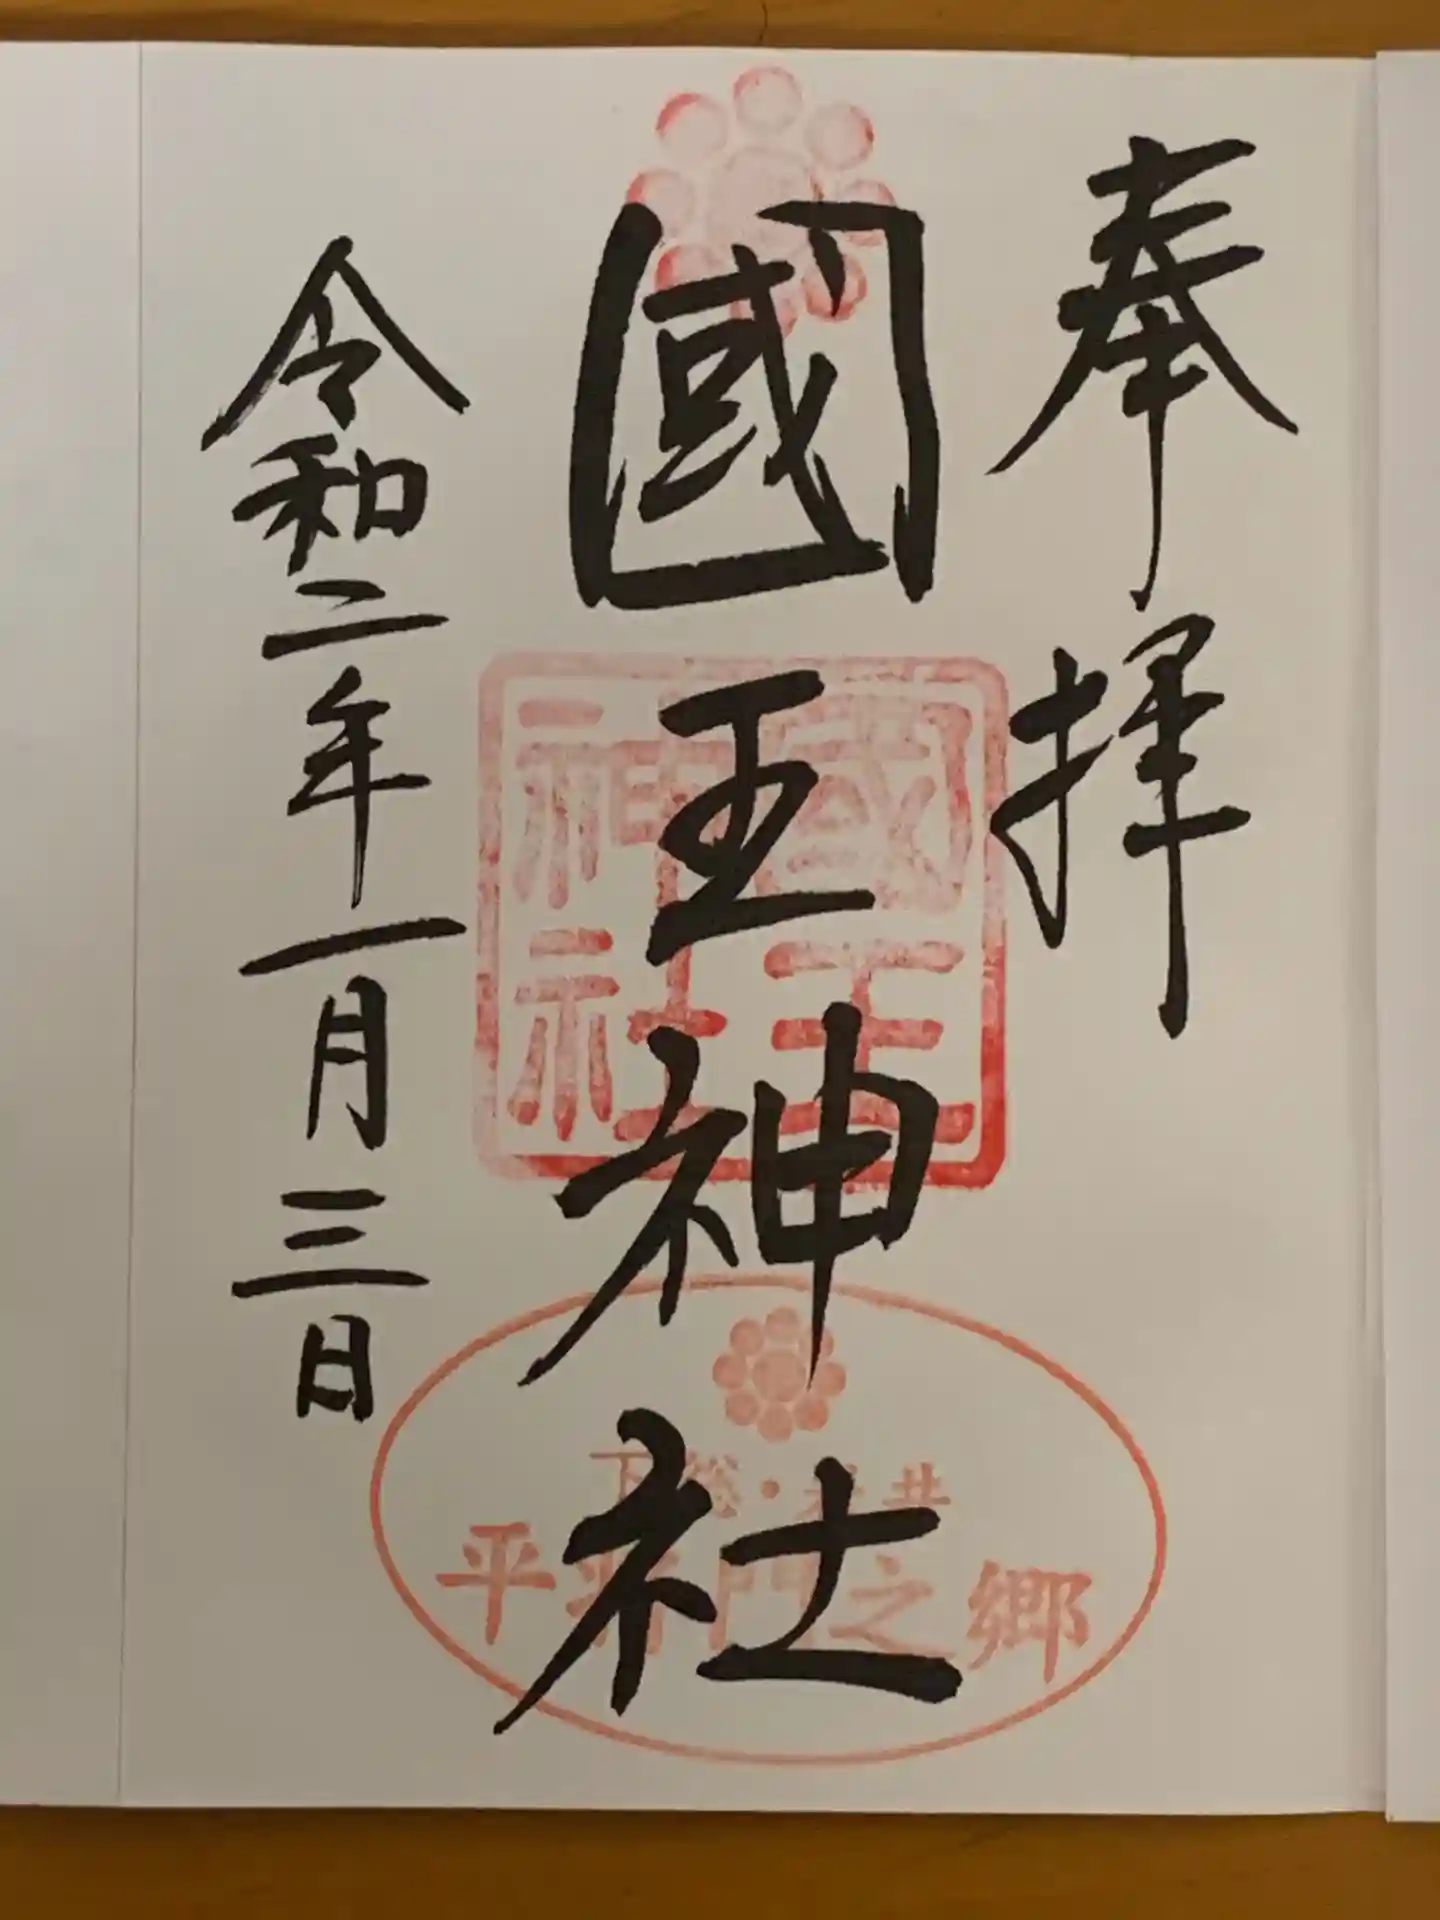 奉拝
國王神社
令和二年一月三日
國王
神社
平将門之郷